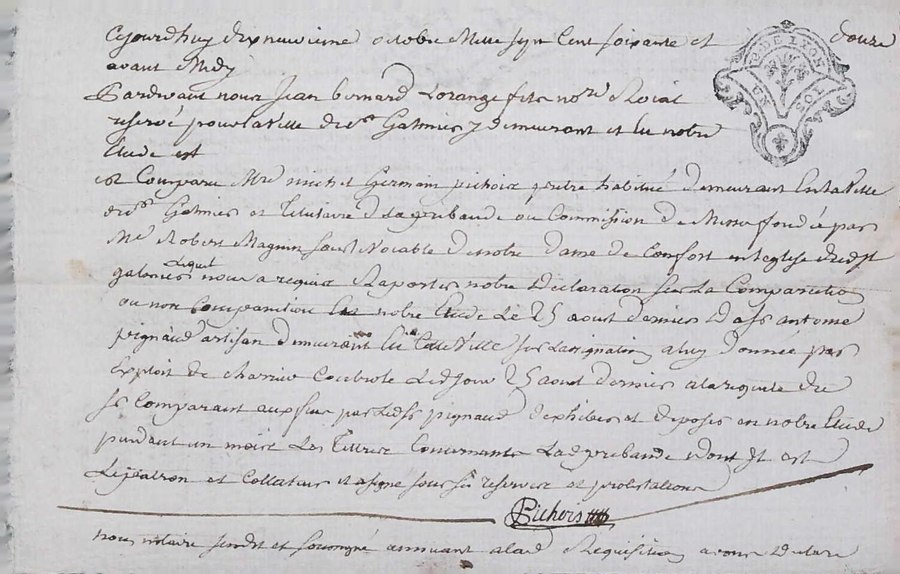 Cejourdhuy dixneuvieme octobre Mille sept Cent soixante et douze
avant Midy
Pardevant nous Jean bernard Lorange fils nore Roial
reservé pour la Ville de St Galmier y demeurant et en notre
Etude est
est Comparu Mre michel Germain pichois pretre habitué demeurant En la Ville
de St Galmier et titulaire de la prebande ou Commission de Messe fondée par
Me Robert Magnin sous le Vocable de notre dame de Comfort en leglise dudit St
galmier Lequel nous a requis Raporter notre Déclaration sur La Comparution
ou non Comparution En notre Etude Le 25 aout dernier De Sr antoine
pignaud artisan demeurant En Cette Ville sur Lassignation a luy donnée par
Exploit de Led jour 25 aout dernier a la requete du
Sr Comparant aux fins par Ledit Sr pignaud d'exhiber et deposer en notre Etude
pendant un mois Les titres Concernants Lad prebande Dont Il est
Le patron et Collateur et a signé sous Ses reserves et protestations
Pichois
nous notaire susdit et soussigné annuant a lad Requisition avons Declaré